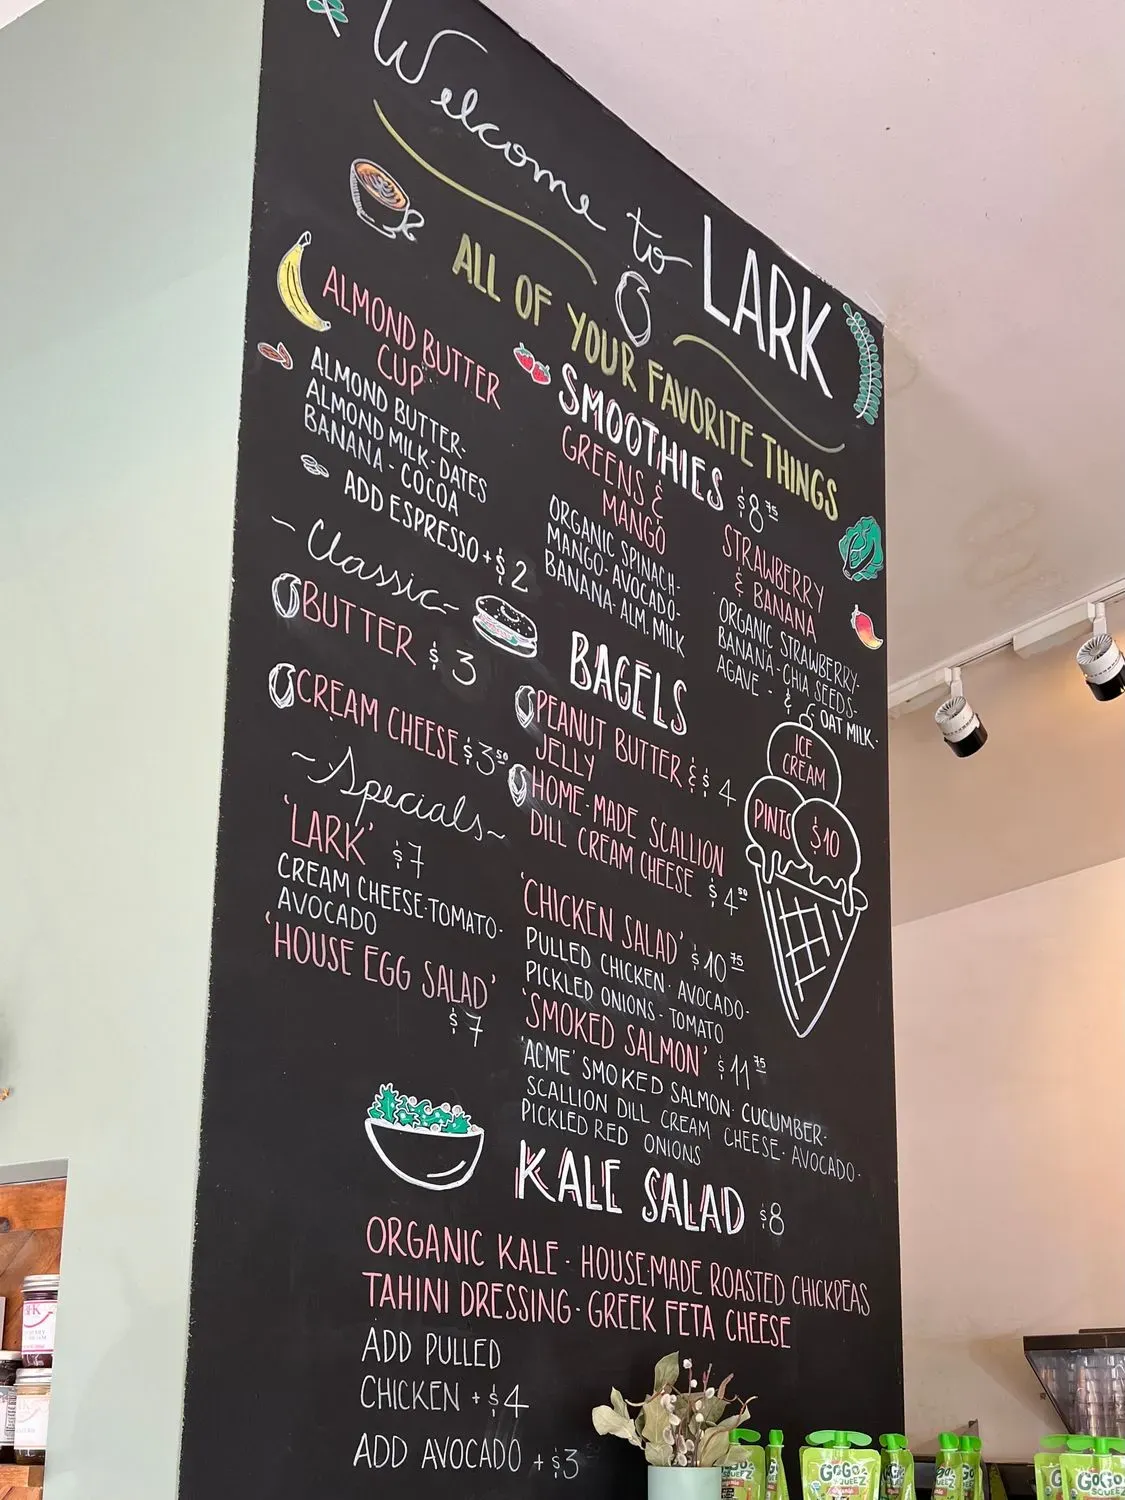 Welcome to LARK
ALL OF YOUR FAVORITE THINGS
ALMOND BUTTER
CUP
ALMOND BUTTER-
ALMOND MILK - DATES
BANANA - COCOA
ADD ESPRESSO + $2
SMOOTHIES $8.75
GREENS &
MANGO
ORGANIC SPINACH-
MANGO - AVOCADO-
BANANA - ALM. MILK
STRAWBERRY
& BANANA
ORGANIC STRAWBERRY-
BANANA - CHIA SEEDS-
AGAVE - &
OAT MILK.
~Classic~
BUTTER $3
CREAM CHEESE $3.50
BAGELS
PEANUT BUTTER &
JELLY
$4
HOME-MADE SCALLION
DILL CREAM CHEESE $4.50
ICE
CREAM
PINTS
$10
~Specials~
'LARK' $7
CREAM CHEESE-TOMATO-
AVOCADO
'HOUSE EGG SALAD'
$7
'CHICKEN SALAD' $10.75
PULLED CHICKEN - AVOCADO-
PICKLED ONIONS - TOMATO
'SMOKED SALMON' $11.75
'ACME' SMOKED SALMON - CUCUMBER-
SCALLION DILL CREAM CHEESE - AVOCADO-
PICKLED RED ONIONS
KALE SALAD $8
ORGANIC KALE - HOUSEMADE ROASTED CHICKPEAS
TAHINI DRESSING - GREEK FETA CHEESE
ADD PULLED
CHICKEN + $4
ADD AVOCADO + $3
GoGo
SQUEEZ
GoGo
SQUEEZ